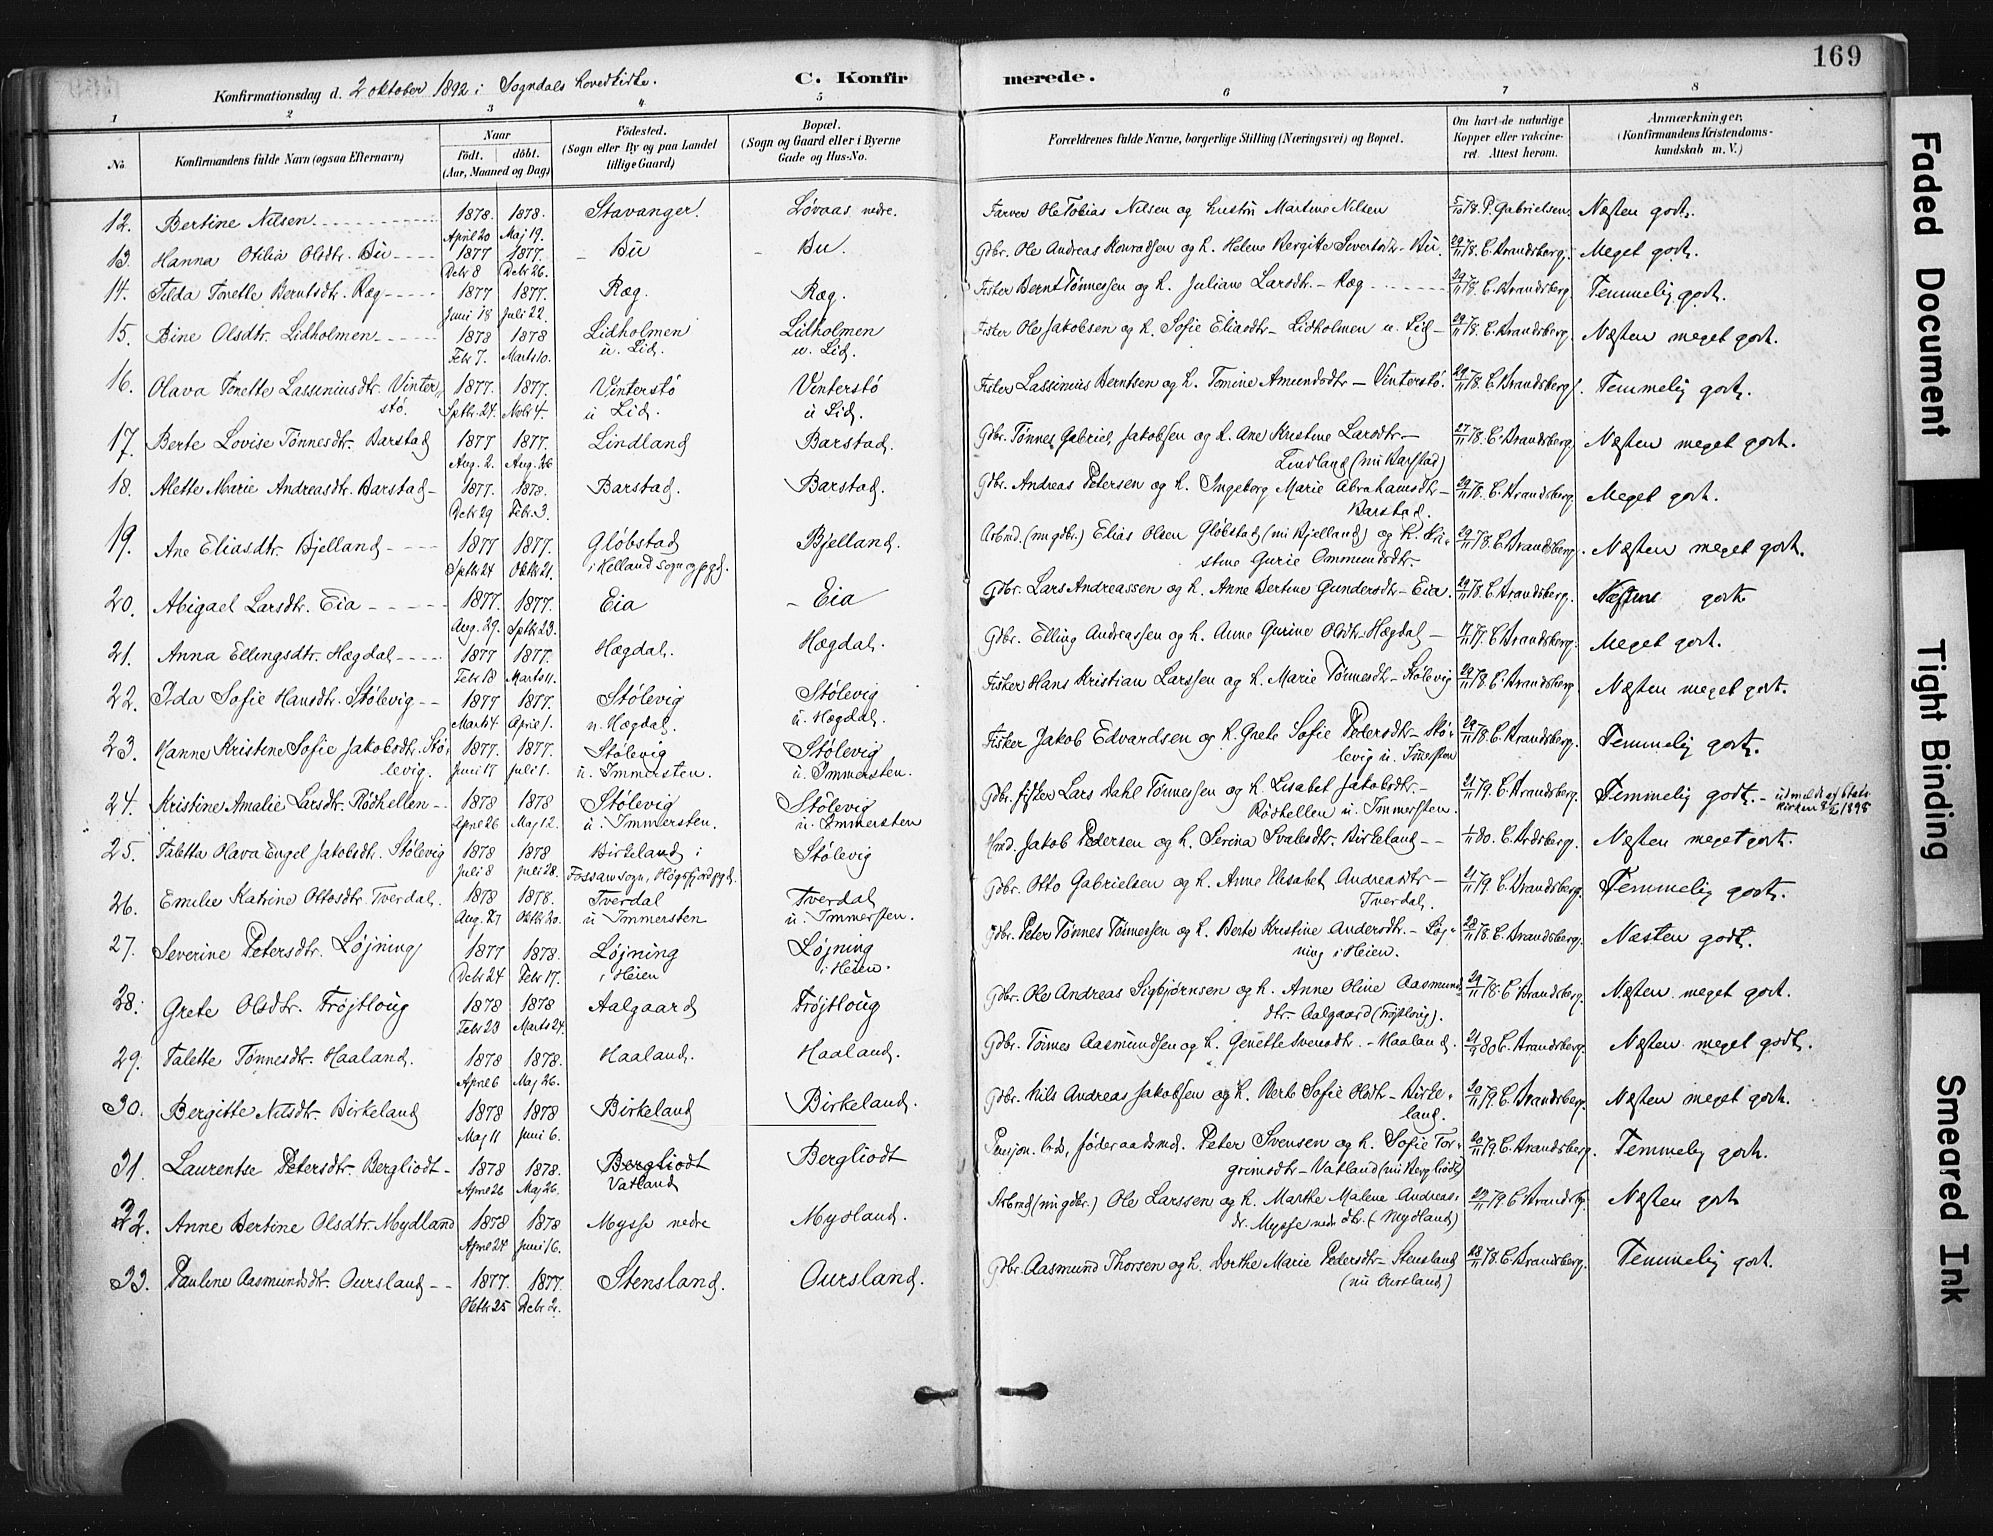 169
Konfirmationsdag d. 2 oktober 1892 i Sogndals hovedkirke.
C. Konfirmerede.
1 2 3 4 5 6 7 8
No. Konfirmandens fulde Navn (ogsaa Efternavn) Naar født. døbt. (Aar, Maaned og Dag) Fødested. (Sogn eller By og paa Landet tillige Gaard) Bopæl. (Sogn og Gaard eller i Byerne Gade og Hus-No. Forældrenes fulde Navne, borgerlige Stilling (Næringsvei) og Bopæl. Om havt de naturlige Kopper eller vakcineret. Attest herom. Anmerkninger. (Konfirmandens Kristendomskundskab m. V.)
12. Bertine Nilsen 1878. 1878. Stavanger. Løvaas nedre. Farver Ole Tobias Nilsen og hustru Martine Nilsen 5/10 78. P. Gabrielsen. Næsten godt.
April 20 Maj 19.
13. Hanna Otilia Olsdtr. Bu 1877 1877. Bu Bu. Gdbr. Ole Andreas Konradsen og h. Helene Bergitte Sivertsdtr. Bu. 29/11 78. C. Strandsberg. Meget godt.
Debr 8 Debr 26.
14. Tilda Tonette Berntsdtr. Ræg 1877 1877. Ræg. Ræg. Fisker Bernt Tønnessen og h. Juliane Larsdtr. - Ræg 29/11 78. C. Strandsberg. Temmelig godt.
Juni 18 Juli 22.
15. Bine Olsdtr. Lidholmen 1878 1878 Lidholmen Lidholmen Fisker Ole Jakobsen og h. Sofie Eliasdtr - Lidholmen u. Lid - 29/11 78. C. Strandsberg. Næsten meget godt.
Febr 7. Marts 10. u. Lid. u. Lid.
16. Olava Tonette Lassiniusdtr. Vinter- 1877. 1877. Vinterstø Vinterstø Fisker Lassinius Berntsen og h. Tomine Amundsdtr - Vinterstø. 29/11 78. C. Strandsberg. Temmelig godt.
stø. Septbr. 24. Novbr 4. u Lid. u Lid.
17. Berte Lovise Tønnesdtr. Barstad 1877 1877. Lindland Barstad. Gdbr. Tønnes Gabriel Jakobsen og h. Ane Kristine Larsdtr - 27/11 78. C. Strandsberg. Næsten meget godt.
Aug. 2. Aug. 26 Lindland (nu Barstad)
18. Alette Marie Andreasdtr. Barstad - 1877. 1878. Barstad. Barstad. Gdbr. Andreas Petersen og h. Ingeborg Marie Abrahamsdtr - 29/11 78. C. Strandsberg. Meget godt.
Debr 29 Febr. 3. Barstad.
19. Ane Eliasdtr. Bjelland 1877 1877. Gløbstad Bjelland. Arbmd. (nu gdbr.) Elias Olsen Gløbstad (nu Bjelland) og h. Kri- 29/11 78. C. Strandsberg. Næsten meget godt.
Septbr 24 Oktbr 21. i Helland sogn og pgd. stine Gurie Ommundsdtr.
20. Abigael Larsdtr. Eia 1877. 1877. Eia Eia Gdbr. Lars Andreassen og h. Anne Bertine Gundersdtr - Eia. 29/11 78. C. Strandsberg. Næsten godt.
Aug. 29. Septbr 23.
21. Anna Ellingsdtr. Hægdal 1877 1877. Hægdal. Hægdal. Gdbr. Elling Andreassen og h. Anne Gurine Olsdtr - Hægdal - 17/11 77. C. Strandsberg. Meget godt.
Febr 18 Marts 11.
22. Ida Sofie Hansdtr. Stølevig 1877 1877. Stølevig Stølevig Fisker Hans Kristian Larssen og h. Marie Tønnesdtr - Stølevig 29/11 78. C. Strandsberg. Næsten meget godt.
Marts 4 April 1. u. Hægdal. u. Hægdal.
23. Hanne Kristine Sofie Jakobsdtr. Stø- 1877. 1877. Stølevig Stølevig Fisker Jakob Edvardsen og h. Grete Sofie Pedersdtr - Stø- 29/11 78. C. Strandsberg. Temmelig godt.
levig. Juni 17 Juli 1. u. Immersten. u. Immersten. levig u. Immersten
24. Kristine Amalie Larsdtr. Rødhellen 1878 1878 Stølevig Stølevig Gdbr. fisker Lars Dahl Tønnessen og h. Lisabet Jakobsdtr. - 21/11 79. C. Strandsberg. Temmelig godt. - udmeldt af Stats-
April 26 Maj 12. u. Immersten. u. Immersten Rødhellen u. Immersten. kirken 1895
25. Taletta Olava Engel Jakobsdtr. Stølevig 1878 1878 Birkeland i Stølevig Hmd. Jakob Pedersen og h. Serina Svalesdtr. Birkeland - 80. C. Strandsberg. Næsten meget godt.
Juli 8 Juli 28. Fossan sogn, Høgsfjord pgd.
26. Emilie Katrine Ottosdtr. Tverdal. 1878 1878. Tverdal Tverdal Gdbr. Otto Gabrielsen og h. Anne Elisabet Andreasdtr - 21/11 79. C. Strandsberg. Temmelig godt.
Aug. 27 Oktbr 20. u Immersten u. Immersten. Tverdal.
27. Severine Petersdtr. Løjning 1877 1878. Løjning Løjning Gdbr. Peter Tønnes Tønnessen og h. Berte Kristine Andersdtr. - Løj- 28/11 78. C. Strandsberg. Næsten godt.
Debr 24 Febr 17. i Heien i Heien. ning i Heien.
28. Grete Olsdtr. Trøjtloug 1878 1878 Aalgaard Trøjtloug Gdbr. Ole Andreas Sigbjørnsen og h. Anne Oline Aasmunds- 29/11 78. C. Strandsberg. Næsten meget godt.
Febr 23 Marts 24. dtr - Aalgaard (Trøjtloug).
29. Talette Tønnesdtr. Haaland. 1878 1878. Haaland. Haaland. Gdbr. Tønnes Aasmundsen og h. Genette Svensdtr. - Haaland. 21/ 80 C. Strandsberg. Næsten meget godt.
April 6 Maj 26.
30. Bergitte Nilsdtr. Birkeland 1878 1878 Birkeland Birkeland. Gdbr. Nils Andreas Jakobsen og h. Berte Sofie Olsdtr - Birke- 20/11 79. C. Strandsberg. Næsten meget godt.
Maj 11 Juni 6. land.
31. Laurentse Petersdtr. Bergliodt - 1878 1878. Bergliodt Bergliodt føderaadsmd. Peter Svensen og h. Sofie Tor- 20/11 79. C. Strandsberg. Temmelig godt.
April 26 Maj 26. Vatland grimsdtr - Vatland (nu Bergliodt)
32. Anne Bertine Olsdtr. Mydland 1878 1878 Mysse nedre Mydland. Arbmd (nu gdbr.) Ole Larssen og h. Marthe Malene Andreas- 29/11 79. C. Strandsbg. Næsten godt
April 24 Juni 16. dr. Mysse nedr dtr. (Mydland)
33. Pauline Aasmundsdtr. Oursland 1877. 1877. Stensland. Oursland. Gdbr. Aasmund Thorsen og h. Dorthe Marie Pedersdtr - Stensland 28/11 78. C. Strandsberg. Temmelig godt.
Oktbr 25 Debr 2. (nu Oursland)
Faded Document
Tight Binding
Smeared Ink